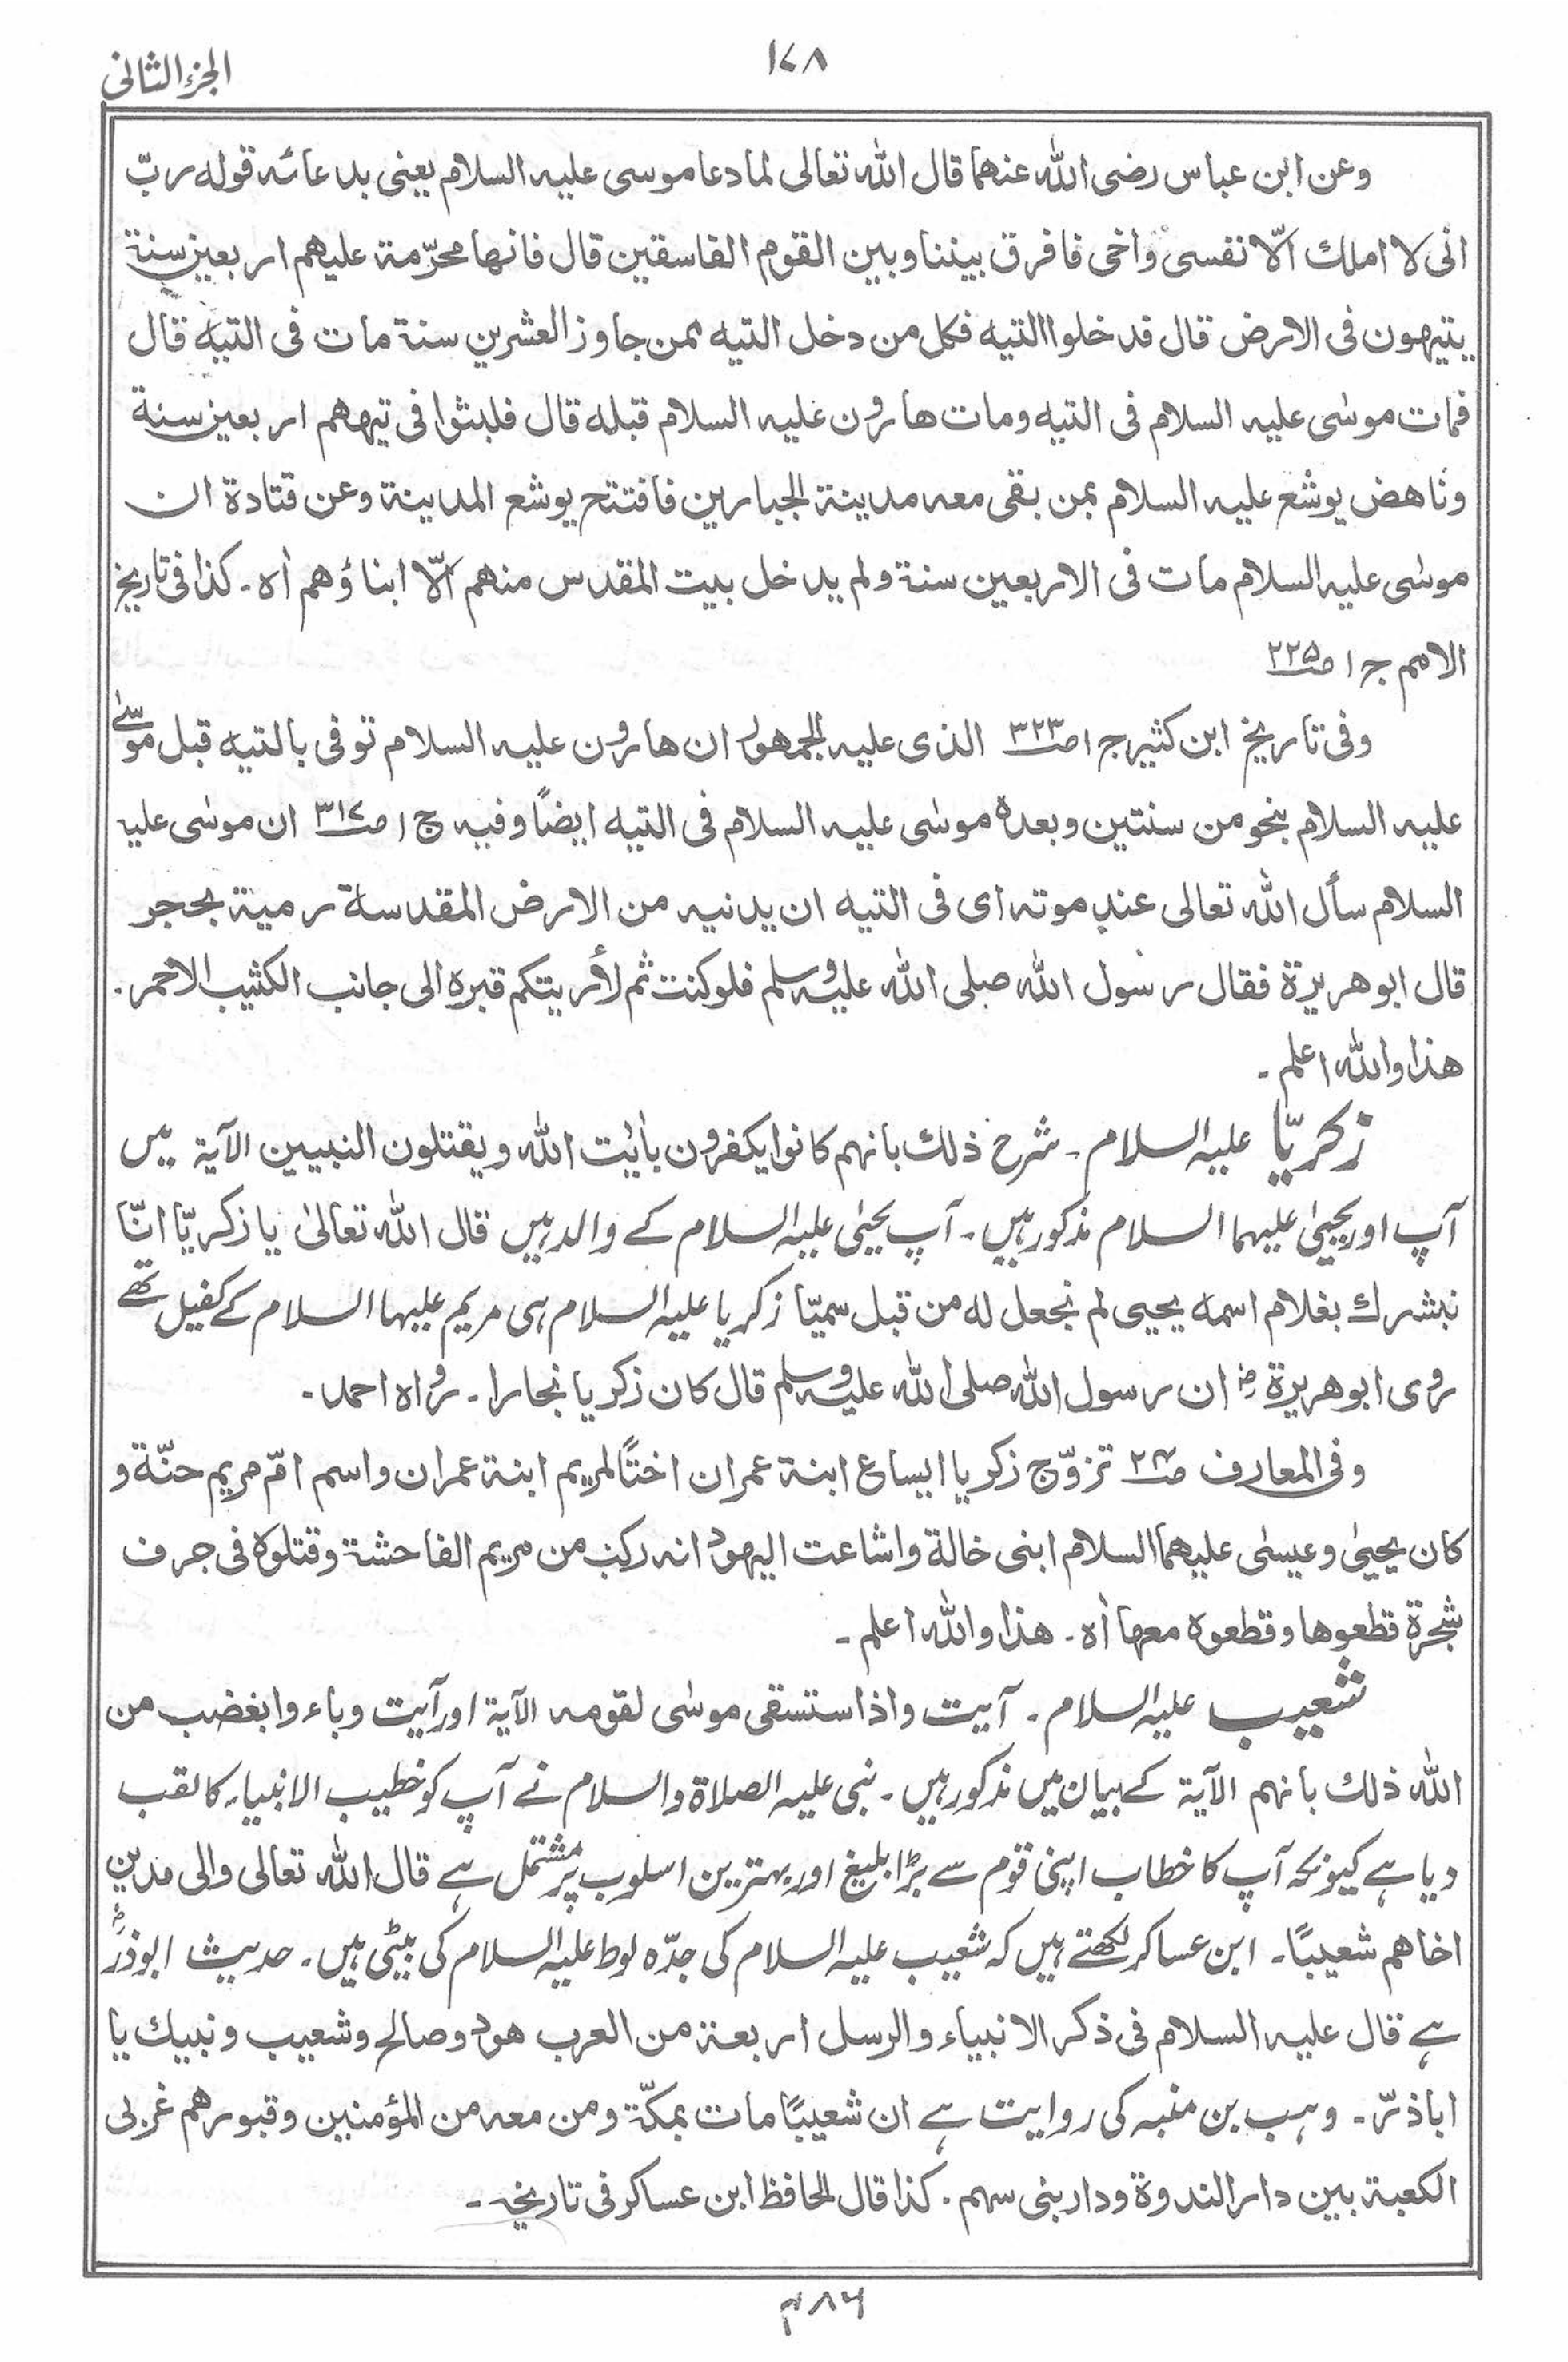 الجزء الثانی
۱۷۸
وعن ابن عباس رضی اللہ عنهما قال اللہ تعالی لما دعا موسی علیہ السلام یعنی بدعائہ قولہ ربّ
انی لا املك الّا نفسی واخی فافرق بیننا وبین القوم الفاسقین قال فانها محرّمة علیهم اربعین سنة
یتیهون فی الارض قال فدخلوا التیہ فکل من دخل التیہ ممن جاوز العشرین سنة مات فی التیہ قال
فمات موسٰی علیہ السلام فی التیہ ومات هارون علیہ السلام قبلہ قال فلبثوا فی تیههم اربعین سنة
وناهض یوشع علیہ السلام بمن بقی معہ مدینة الجبارین فافتتح یوشع المدینة وعن قتادة ان
موسٰی علیہ السلام مات فی الاربعین سنة ولم یدخل بیت المقدس منهم الّا ابناؤهم اٰہ۔ کذا فی تاریخ
الامم جـ ۱ صـ ۲۲۵
وفی تاریخ ابن کثیر جـ ۱ صـ ۳۲۳ الذی علیہ الجمهور ان هارون علیہ السلام توفی بالتیہ قبل موسٰی
علیہ السلام بنحو من سنتین وبعدہ موسٰی علیہ السلام فی التیہ ایضًا وفیہ ج ۱ صـ ۳۱۷ ان موسٰی علیہ
السلام سأل اللہ تعالی عند موتہ ای فی التیہ ان یدنیہ من الارض المقدسة رمیة بحجر
قال ابو هریرة فقال رسول اللہ صلی اللہ علیہ وسلم فلو کنت ثم لأریتکم قبرہ الی جانب الکثیب الاحمر۔
هذا واللہ اعلم۔
زکریّا علیہ السلام۔ شرح ذلك بانهم کانوا یکفرون باٰیٰت اللہ ویقتلون النبیین الآیة میں
آپ اور یحییٰ علیہما السلام مذکور ہیں۔ آپ یحییٰ علیہ السلام کے والد ہیں قال اللہ تعالیٰ یا زکریّا انّا
نبشرك بغلام اسمہ یحیی لم نجعل لہ من قبل سمیّا زکریا علیہ السلام ہی مریم علیہا السلام کے کفیل تھے
روی ابو هریرة رضؓ ان رسول اللہ صلی اللہ علیہ وسلم قال کان زکریا نجارا۔ رواہ احمد۔
وفی المعارف صـ ۲۴ تزوّج زکریا ایساع ابنة عمران اختًا لمریم ابنة عمران واسم امّ مریم حنّة و
کان یحییٰ وعیسٰی علیهما السلام ابنی خالة واشاعت الیهود انہ رکب من مریم الفاحشة وقتلوہ فی جرف
شجرة قطعوها وقطعوہ معها اٰہ۔ هذا واللہ اعلم۔
شعیب علیہ السلام۔ آیت واذا ستسقی موسٰی لقومہ الآیة اور آیت وباء وا بغضب من
اللہ ذلك بانهم الآیة کے بیان میں مذکور ہیں۔ نبی علیہ الصلاة والسلام نے آپ کو خطیب الانبیاء کا لقب
دیا ہے کیونکہ آپ کا خطاب اپنی قوم سے بڑا بلیغ اور بہترین اسلوب پر مشتمل ہے قال اللہ تعالی والی مدین
اخاهم شعیبًا۔ ابن عساکر لکھتے ہیں کہ شعیب علیہ السلام کی جدّہ لوط علیہ السلام کی بیٹی ہیں۔ حدیث ابوذرؓ
ہے قال علیہ السلام فی ذکر الانبیاء والرسل اربعة من العرب هود وصالح وشعیب ونبیك یا
اباذرّ۔ وہب بن منبہ کی روایت ہے ان شعیبًا مات بمکّة ومن معہ من المؤمنین وقبورهم غربی
الکعبة بین دار الندوة ودار بنی سهم۔ کذا قال الحافظ ابن عساکر فی تاریخہ۔